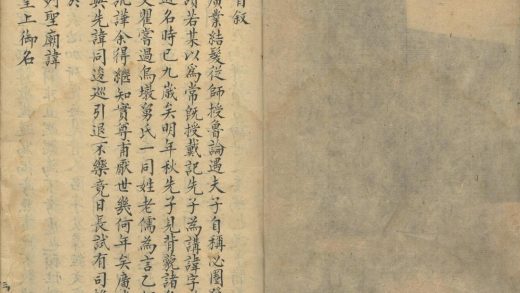 自叙
廣業結髮從師授魯論遇夫子自稱心圈發
請若某以為常旣授戴記先子為講諱字
名時已九歲矣明年秋先子見背藐諸
文翟嘗過烏墩舅氏一同姓老儒為言乙
諱余得纚知實尊甫厭世幾何年矣廣
與先諱同逡巡引退不樂竟日長試有司
於
列聖廟諱
皇上御名